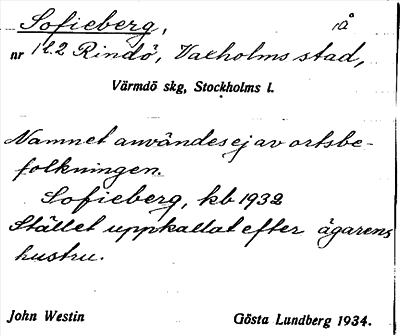 Sofieberg, på
nr 1 o. 2 Rindö, Vaxholms stad,
Värmdö skg, Stockholms l.
Namnet användes ej av ortsbe-
folkningen.
Sofieberg, kb 1932
Stället uppkallat efter ägarens
hustru.
John Westin Gösta Lundberg 1934.